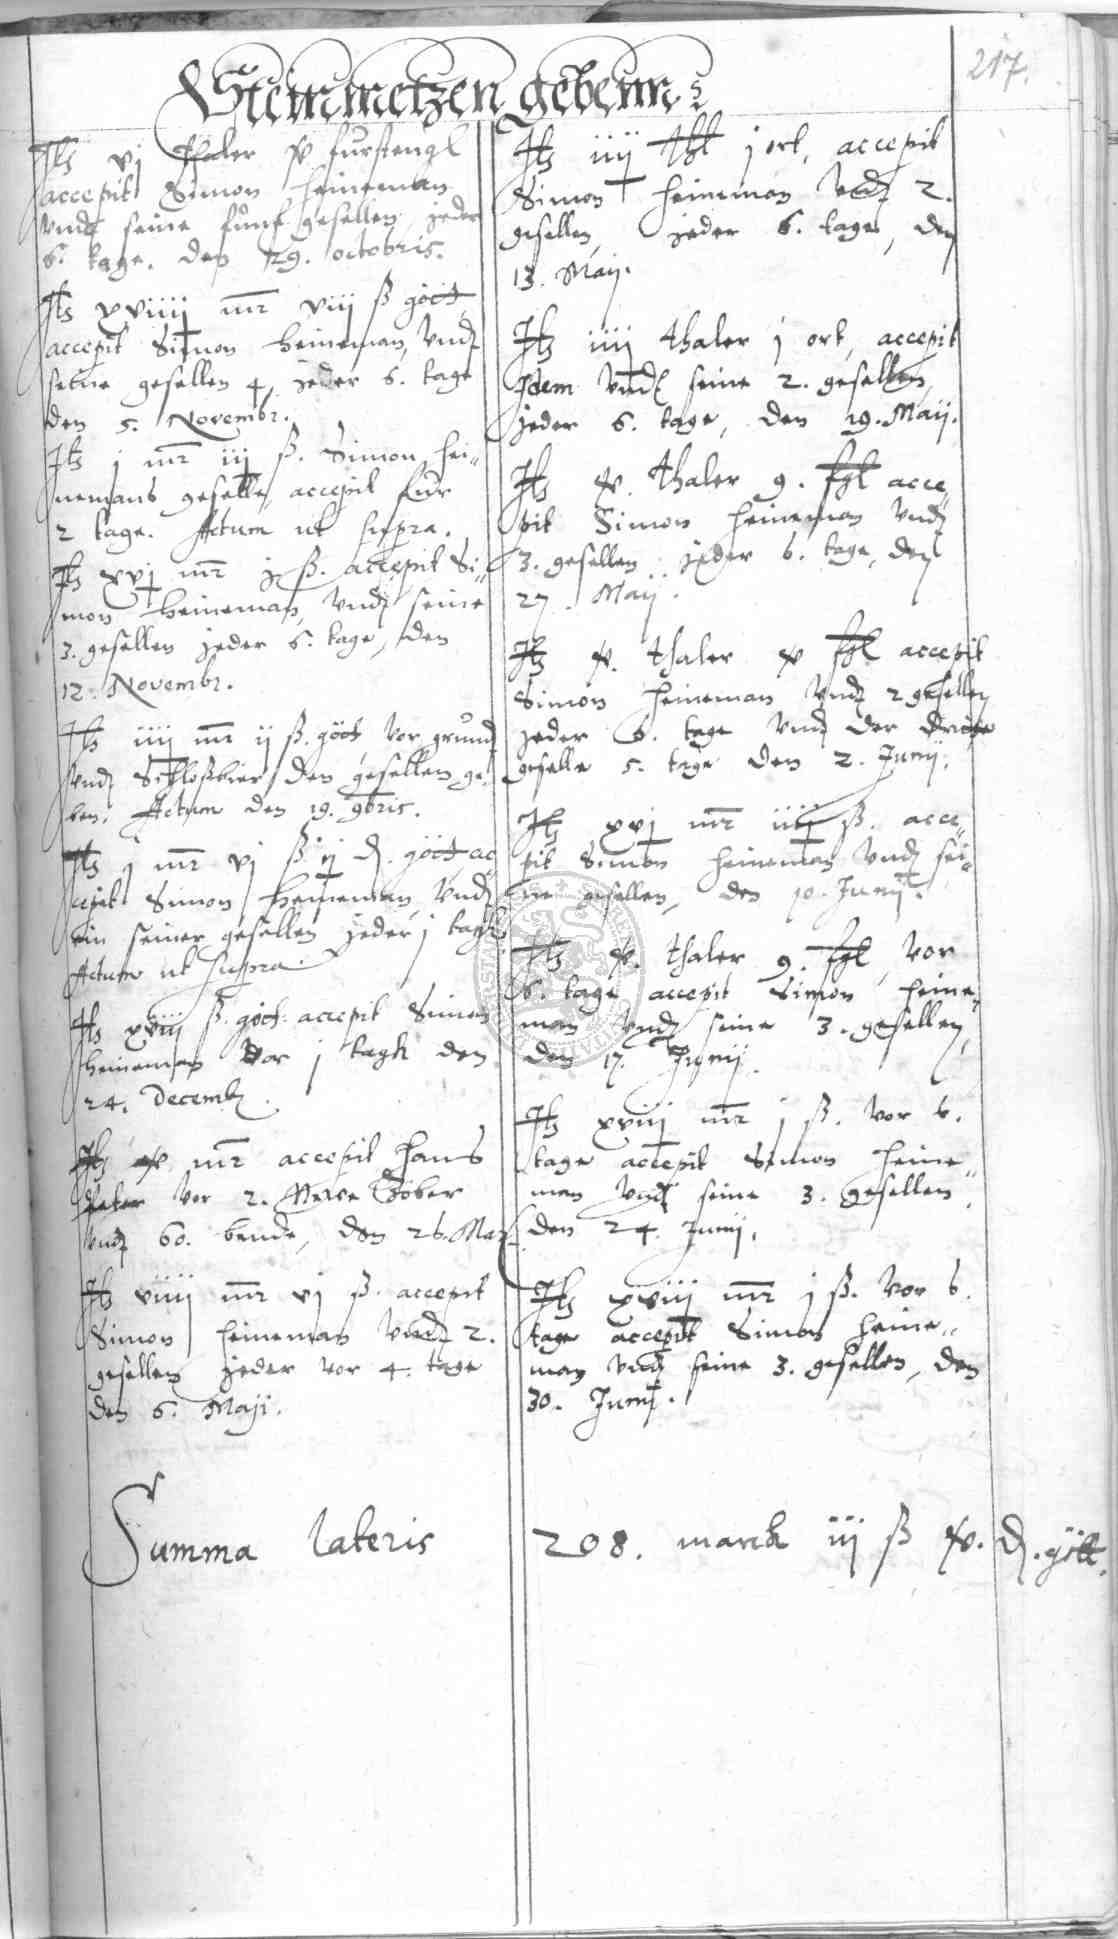 217.
Steinmetzen gebenn
It vj thaler xv furstengl
accepit Simon Heineman
vnd seine funf gesellen, jeder
6. tage. den 29. octobris.
It xviiij mr viij ß gött
accepit Simon Heineman, vnd
seine gesellen 4, jeder 6. tage
den 5. Novembr.
It j mr iij ß. Simon Hei„
nemans geselle, accepit fur
2 tage. Actum ut supra.
It xvj mr ß. accepit Si„
mon Heineman, vnd seine
3. gesellen jeder 6. tage, den
12. Novembr.
It iiij mr ij ß. gött, vor grund
vnd Schloßbier den gesellen ge„
ben. Actum den 19. 9bris.
It j mr vj ß ij d. gött ac„
cepit Simon Heineman vnd
ein seiner gesellen jeder j tagk
Actum ut supra.
It xviij ß. gött. accepit Simon
Heineman vor j tagk den
24. Decemb.
It mr accepit Hans
vor 2. Zober
vnd 60. bende, den 26. Maj
It viiij mr vj ß. accepit
Simon Heineman vnd 2.
gesellen jeder vor 4. tage
den 6. Maji.
It iiij thl j ort, accepit
Simon Heineman vnd 2.
gesellen, jeder 6. tage, den
13. Maij.
It iiij thaler j ort, accepit
Idem vnd seine 2. gesellen,
jeder 6. tage, den 19. Maij.
It v. thaler 9. fgl acce„
pit Simon Heineman vnd
3. gesellen jeder 6. tage, den
27. Maij.
It v. thaler xv fgl accepit
Simon Heineman vnd 2 gesellen
jeder 6. tage vnd der dritte
geselle 5. tage den 2. Junij.
It xvj mr iiij ß. acce„
pit Simon Heineman vnd sei„
ne gesellen, den 10. Junij.
It v. thaler 9. fgl, vor
6. tage accepit Simon Heine„
man vnd seine 3. gesellen,
den 17. Junij.
It xviij mr j ß. vor 6.
tage accepit Simon Heine„
man vnd seine 3. gesellen
den 24. Junij.
It xviij mr j ß. vor 6.
tage accepit Simon Heine„
man vnd seine 3. gesellen, den
30. Junij.
Summa lateris 208. marck iij ß xv. d. gött.